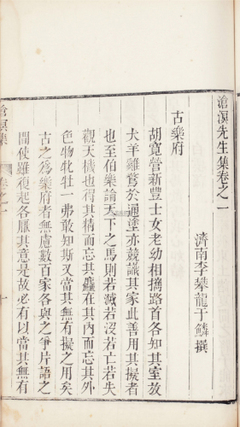 滄溟先生集卷之一
濟南李攀龍于鱗撰
古樂府
胡寬營新豐士女老幼相攜路首各知其室放
犬羊雞鶩於通塗亦競識其家此善用其擬者
也至伯樂論天下之馬則若滅若沒若亡若失
觀天機也得其精而忘其麤在其內而忘其外
色物牝牡一弗敢知斯又當其無有擬之用矣
古之為樂府者無慮數百家各與之爭片語之
間使雖復起各厭其意是故必有以當其無有
滄溟集
卷之一